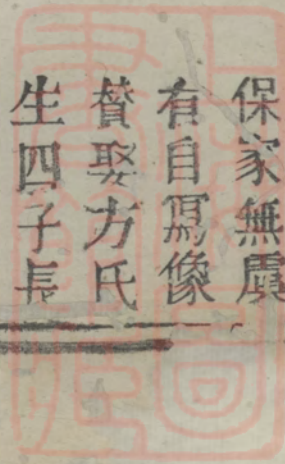 保家無虞
有自寫像
贊娶方氏
生四子長